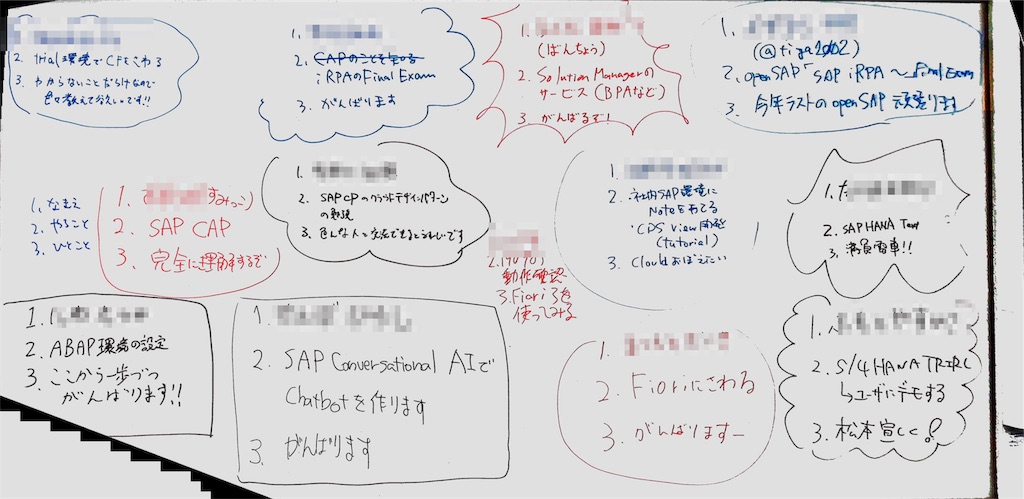 2. trial環境でCFをさわる
3. わからないことだらけなので
色々教えて欲しいです!!
1.
2. CAPのことを知る
iRPAのFinal Exam
3. がんばります
1.
(ばんちょう)
2. Solution Managerの
サービス (BPAなど)
3. がんばるぞ!
1.
(@tiga2002)
2. openSAP「SAP iRPA 〜 Final Exam
3. 今年ラストのopenSAP 頑張ります
1. なまえ
2. やること
3. ひとこと
1. すみっこ)
2. SAP CAP
3. 完全に理解するぞ
1.
2. SAP CPのクラウドデザインパターン
の勉強
3. 色んな人と交流できるとうれしいです
2.
動作確認
3. Fiori 3を
使ってみる
1.
2. 社内SAP環境に
Noteをあてる
・CDS View 開発
(tutorial)
3. Cloudおぼえたい
1. た
2. SAP HANA Tour
3. 満員電車!!
1.
2. ABAP環境の設定
3. ここから一歩づつ
がんばります!!
1.
2. SAP Conversational AIで
Chatbotを作ります
3. がんばります
1.
2. Fioriにさわる
3. がんばりますー
1.
2. S/4HANA
↳ユーザにデモする
3. 松本宜しく!